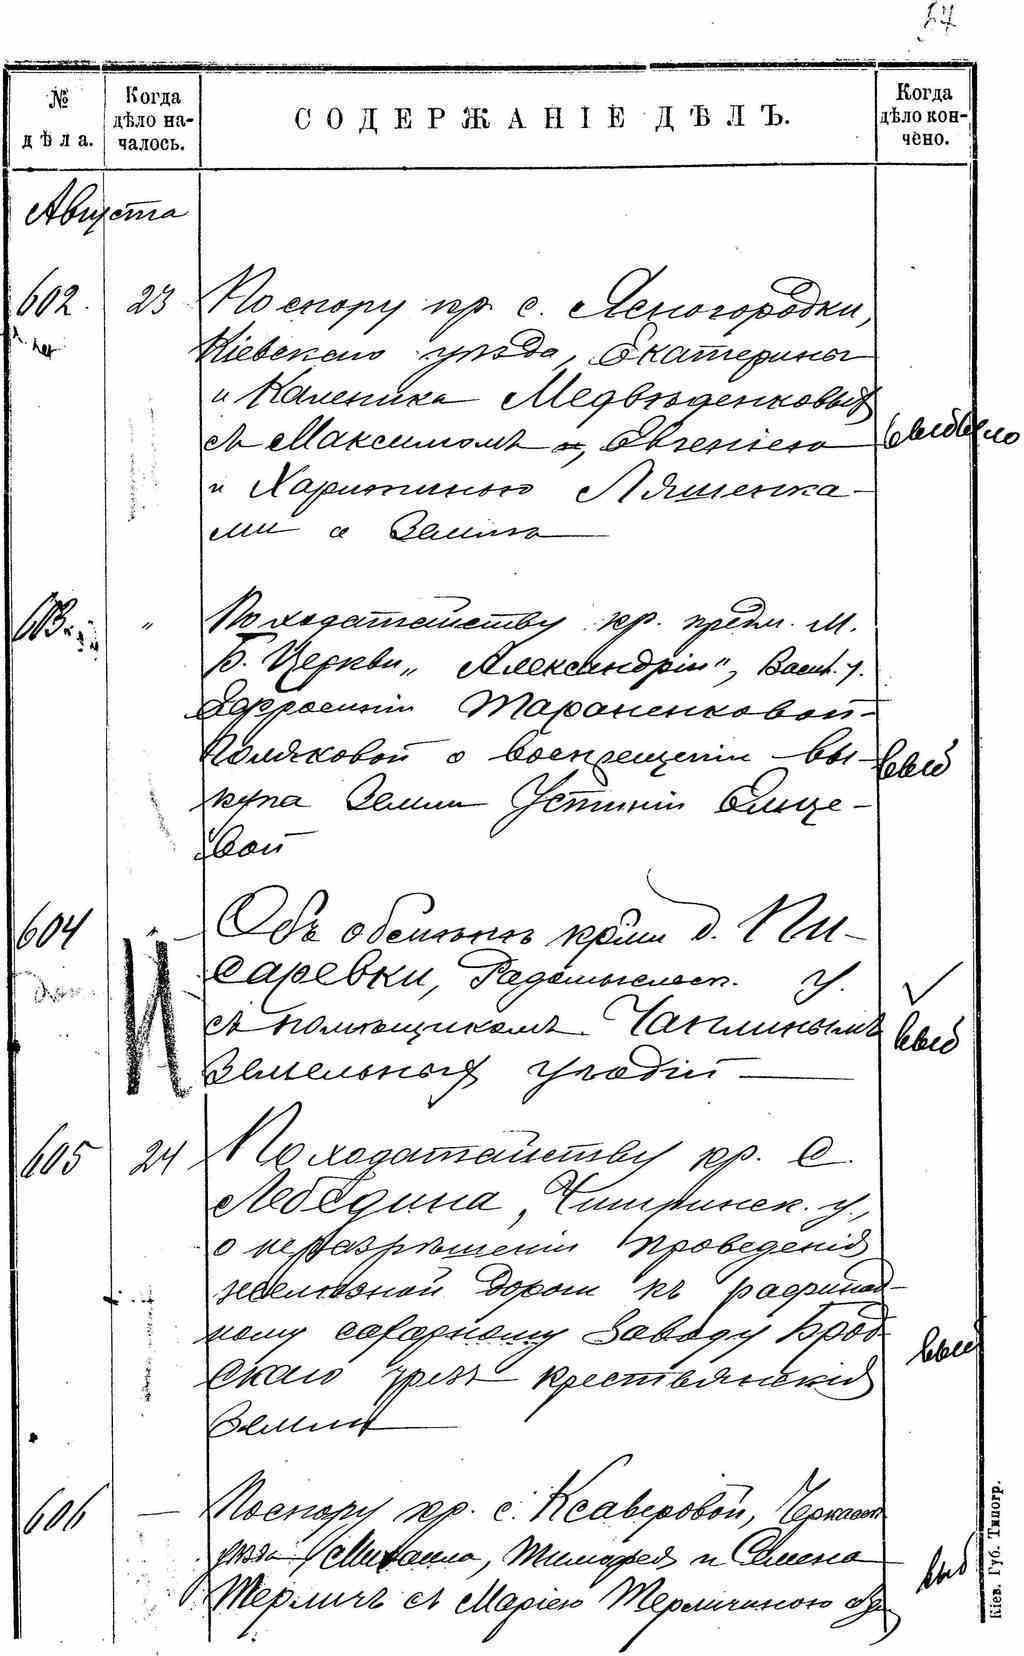 57
№ дѣла.
Когда дѣло началось.
СОДЕРЖАНІЕ ДѢЛЪ.
Когда дѣло кончено.
Августа
602. 23 По спору кр. с. Ясногородки,
Кіевскаго уѣзда, Екатерины
и Каленика Медвѣденковыхъ
съ Максимомъ, Евгеніею
и Харитиною Ляшенка-
ми о землѣ
603. " По ходатайству кр. предм. М.
Б. Церкви „Александріи", Васил. у.
Ефросиніи Тараненковой-
Поляковой о воспрещеніи вы-
купа земли Устиніи Ельце-
вой
выб
604 " Объ обмѣнѣ крми д. Пи-
саревки, Радомысльск. у.
съ помѣщикомъ Чаплинымъ
земельныхъ угодій
выб
605 24 По ходатайству кр. с.
Лебедина, Чигиринск. у.,
о неразрѣшеніи проведенія
желѣзной дороги къ рафинад-
ному сахарному заводу Брод-
скаго чрезъ крестьянскія
земли
выб
606 — По спору кр. с. Ксаверовой, Черкасск
уѣзда Михаила, Тимофея и Семена
Терличъ съ Маріею Терличиною о зе
выб
Кіев. Губ. Типогр.